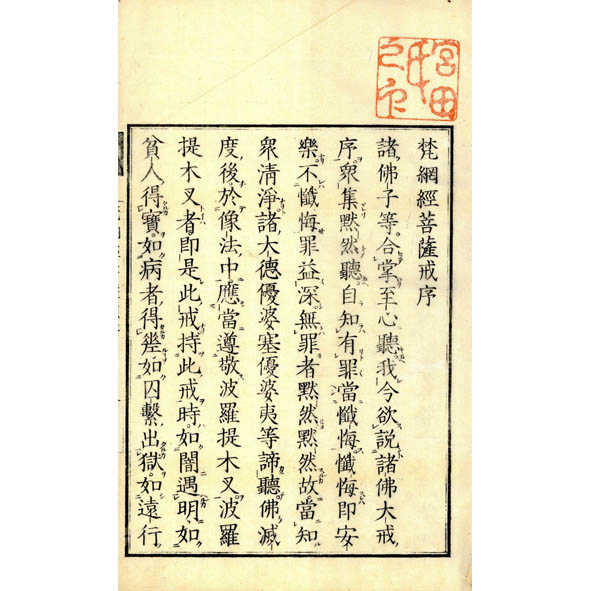 宮田氏之印
梵網經菩薩戒序
諸佛子等。合掌至心。聽我今欲説諸佛大戒
序。衆集默然聽。自知有罪。當懺悔。懺悔即安
樂。不懺悔罪益深。無罪者默然。默然故當知
衆清淨。諸大德優婆塞優婆夷等諦聽。佛滅
度後。於像法中。應當遵敬波羅提木叉。波羅
提木叉者。即是此戒。持此戒時。如闇遇明。如
貧人得寳。如病者得。如囚繫出獄。如遠行